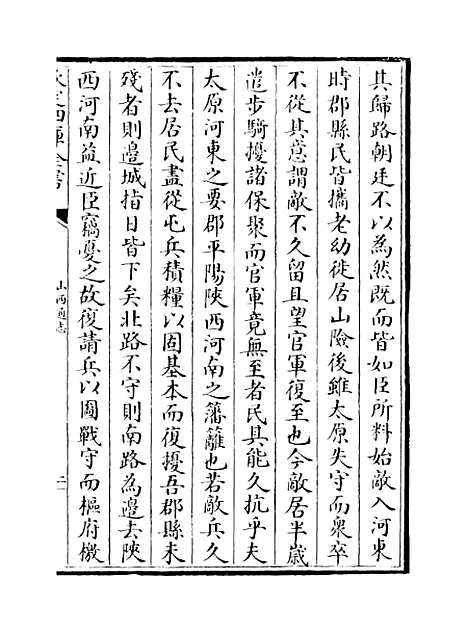 其歸路朝廷不以為然既而皆如臣所料始敵入河東
時郡縣民皆攜老幼徙居山險後雖太原失守而衆卒
不從其意謂敵不久留且望官軍復至也今敵居半歲
遣步騎擾諸保聚而官軍竟無至者民其能久抗乎夫
太原河東之要郡平陽陝西河南之藩籬也若敵兵久
不去居民盡從屯兵積糧以固基本而復擾吾郡縣未
殘者則邊城指日皆下矣北路不守則南路為邊去陝
西河南益近臣竊憂之故復請兵以圖戰守而樞府檄
山西通志